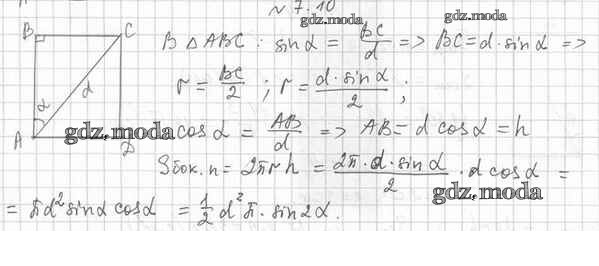 № 7.10
gdz.moda
gdz.moda
B C
В △ ABC : sin α = BC/d => BC = d · sin α =>
r = BC/2 ; r = d · sin α/2 ;
α d
A D
gdz.moda
cos α = AB/d => AB = d cos α = h
Sбок. п = 2πrh = 2π · d · sin α/2 · d cos α =
gdz.moda
= πd² sin α cos α = 1/2 d² π · sin 2α .